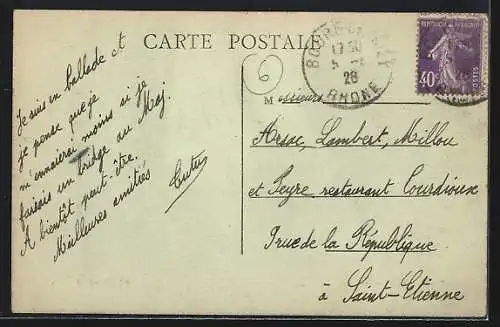 CARTE POSTALE
Je suis en ballade et
je pense que je
m'ennuierai moins si je
faisais un bridge au Maj.
A bientôt peut-être.
Meilleures amitiés
6
17 30
5
28
RHONE
REPUBLIQUE FRANÇAISE
40c
POSTES
Messieurs
Arsac, Lambert, Millou
et Peyre restaurant Courdioux
1 rue de la République
à Saint-Etienne